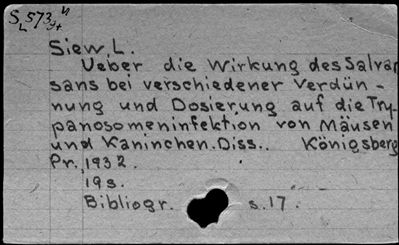 S 573
Siew, L.
Ueber die Wirkung des Salvar
sans bei verschiedener Verdün-
nung und Dosierung auf die Try-
panosomeninfektion von Mäusen
und Kaninchen. Diss.. Königsberg
Pr., 1932.
19 s.
Bibliogr. s. 17.